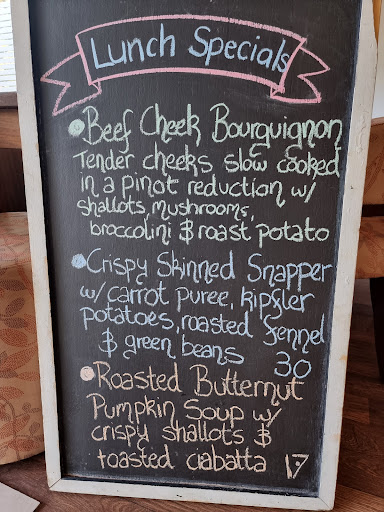 Lunch Specials
Beef Cheek Bourguignon
Tender cheeks slow cooked
in a pinot reduction w/
shallots, mushrooms,
broccolini & roast potato
Crispy Skinned Snapper
w/ carrot puree, kipfler
potatoes, roasted fennel
& green beans 30
Roasted Butternut
Pumpkin Soup w/
crispy shallots &
toasted ciabatta 17